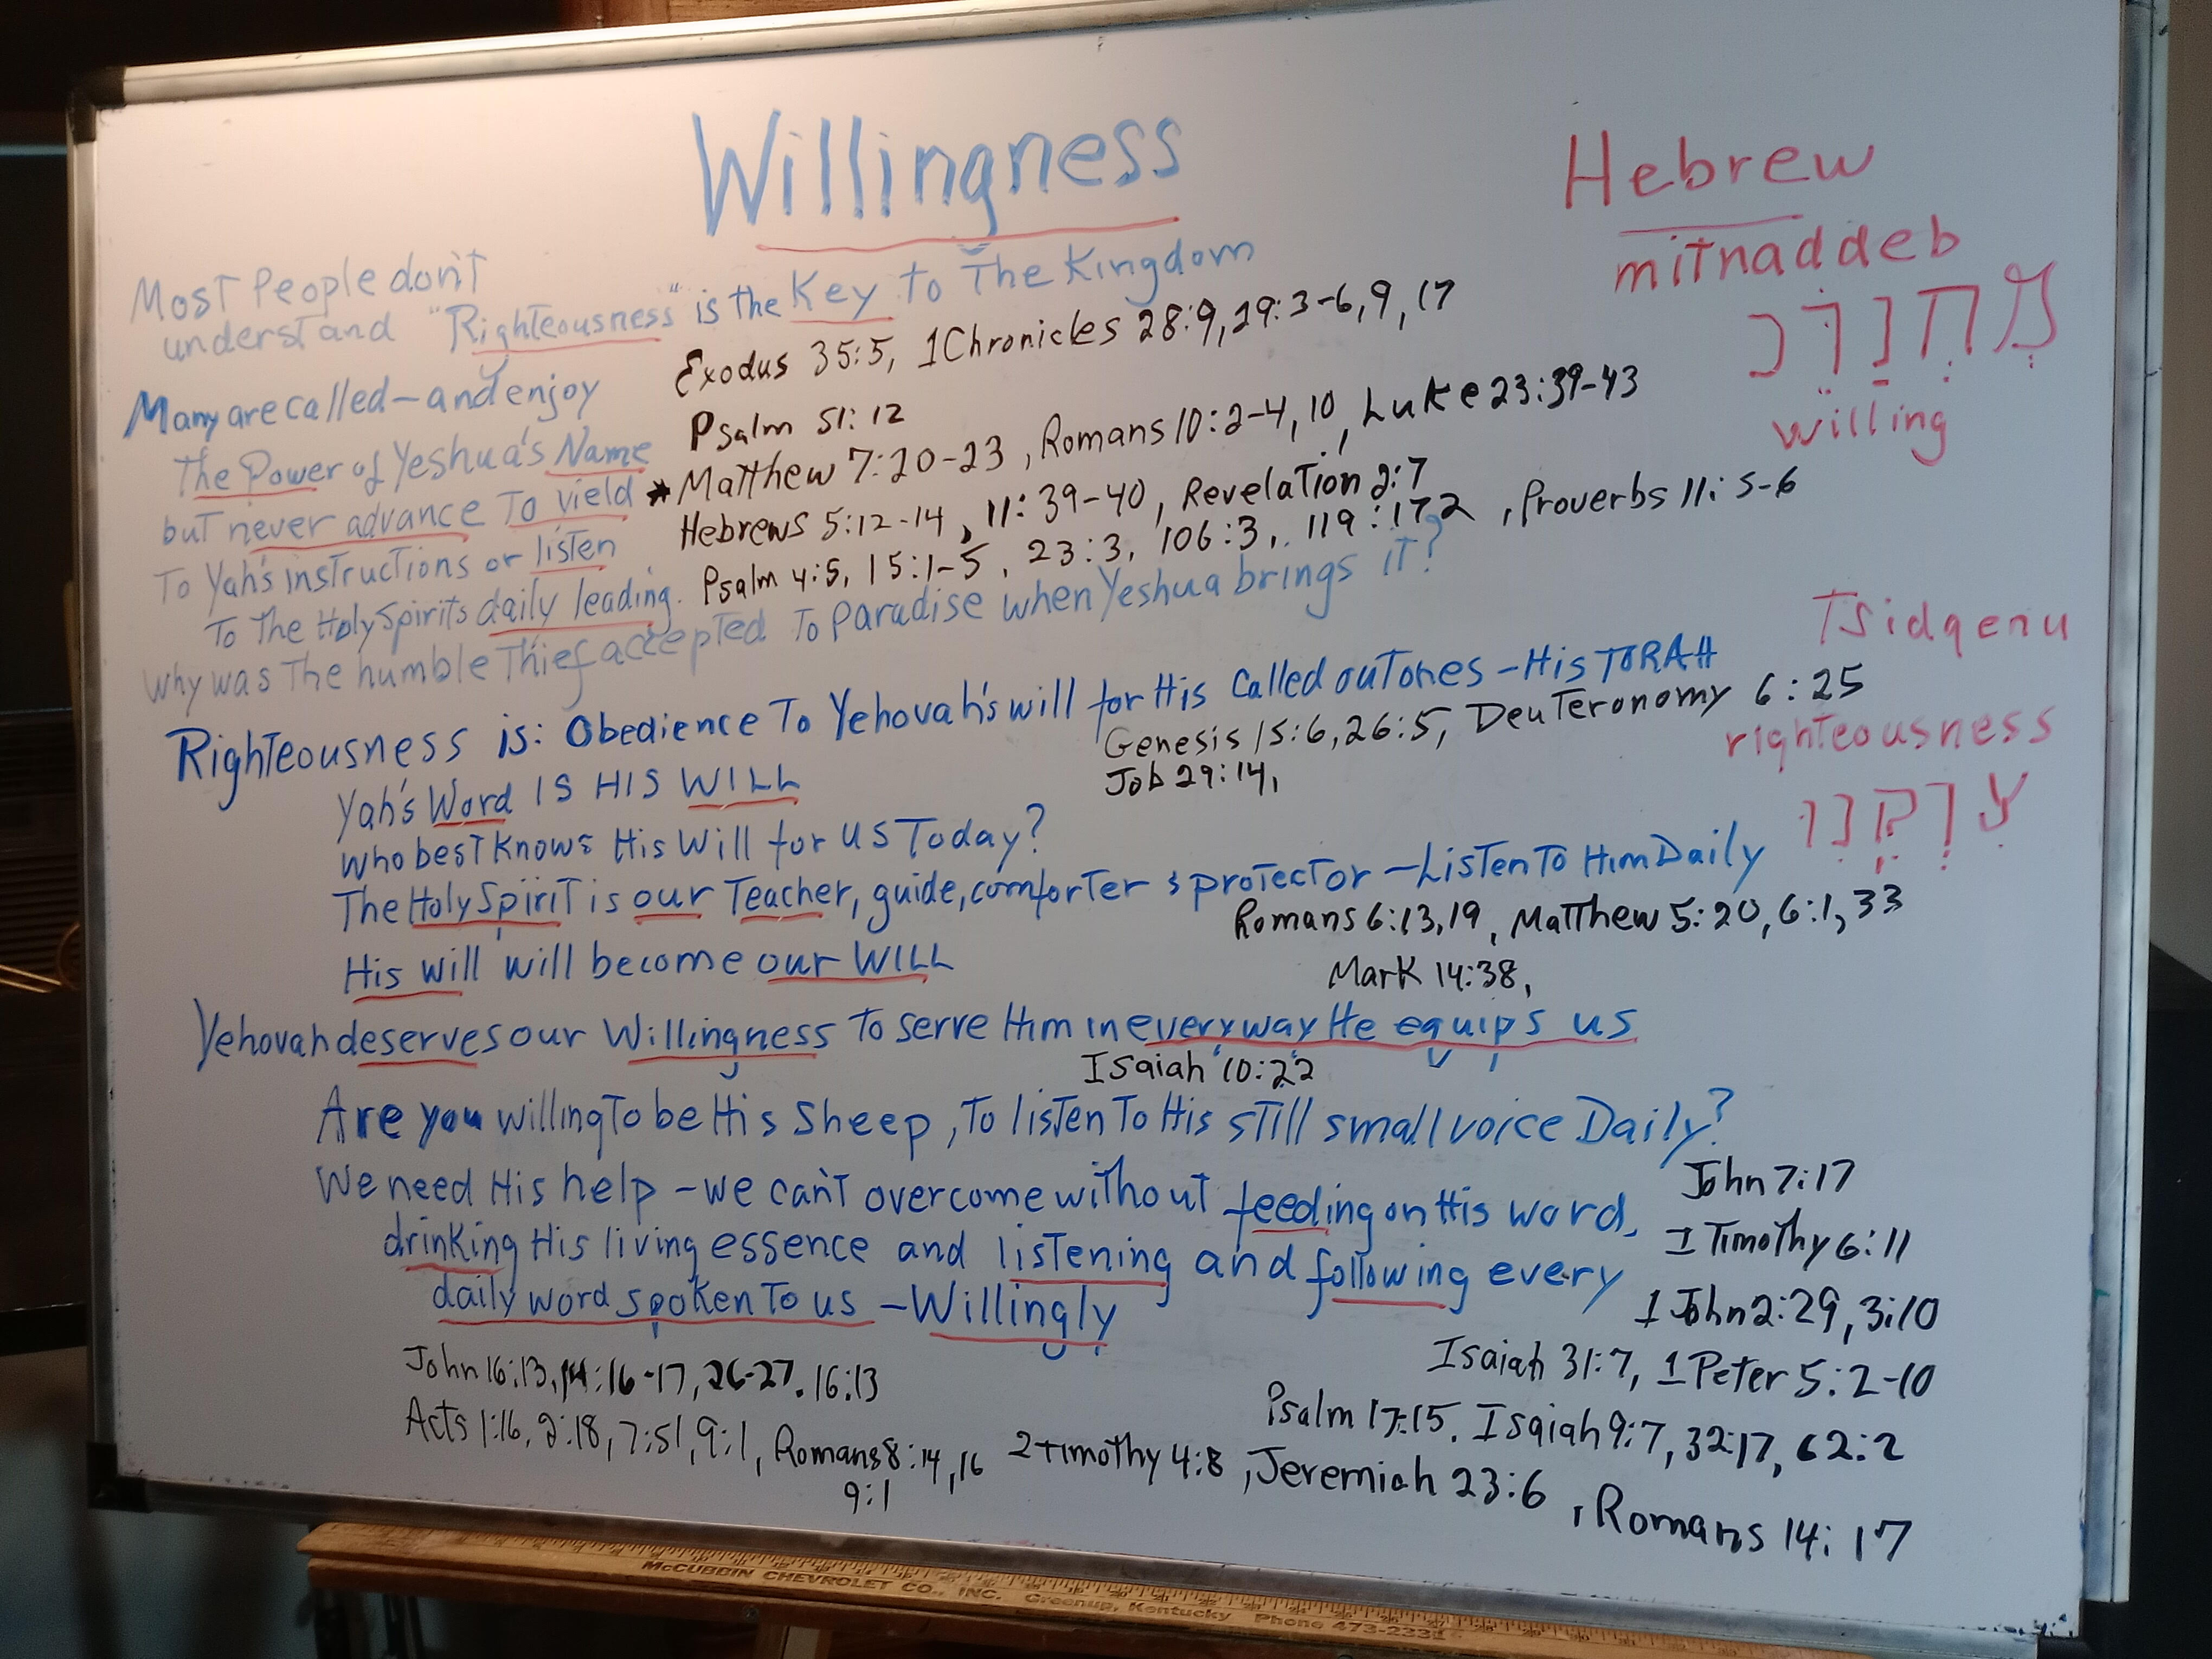 Willingness
Hebrew
mitnaddeb
מִתְנַדֵּב
willing
Most People don't
understand "Righteousness" is the Key to The Kingdom
Exodus 35:5, 1Chronicles 28:9, 29:3-6, 9, 17
Many are called - and enjoy
Psalm 51:12
The Power of Yeshua's Name
* Matthew 7:20-23, Romans 10:2-4, 10, Luke 23:39-43
but never advance To yield
Hebrews 5:12-14, 11:39-40, Revelation 2:7
To Yah's instructions or listen
Psalm 4:5, 15:1-5, 23:3, 106:3, 119:172, Proverbs 11:5-6
To The Holy Spirits daily leading.
Why was The humble Thief accepted To paradise when Yeshua brings it?
Tsidqenu
righteousness
צִדְקֵנוּ
Righteousness is: Obedience To Yehovah's will for His Called out ones - His TORAH
Genesis 15:6, 26:5, Deuteronomy 6:25
Job 29:14,
Yah's Word IS HIS WILL
Who best Knows His Will for us Today?
The Holy Spirit is our Teacher, guide, comforter & protector - Listen To Him Daily
Romans 6:13,19, Matthew 5:20, 6:1, 33
Mark 14:38,
His will will become our WILL
Yehovah deserves our Willingness To serve Him in every way He equips us
Isaiah 10:22
Are you willing To be His Sheep, To listen To His still small voice Daily?
We need His help - we can't overcome without feeding on His word,
drinking His living essence and listening and following every
daily word spoken To us - Willingly
John 7:17
1 Timothy 6:11
1 John 2:29, 3:10
Isaiah 31:7, 1 Peter 5:2-10
Psalm 17:15, Isaiah 9:7, 32:17, 62:2
2 Timothy 4:8, Jeremiah 23:6, Romans 14:17
John 16:13, 14:16-17, 26-27. 16:13
Acts 1:16, 2:18, 7:51, 9:1, Romans 8:14, 16
9:1
McCUBBIN CHEVROLET CO., INC. Greenup, Kentucky Phone 473-2331